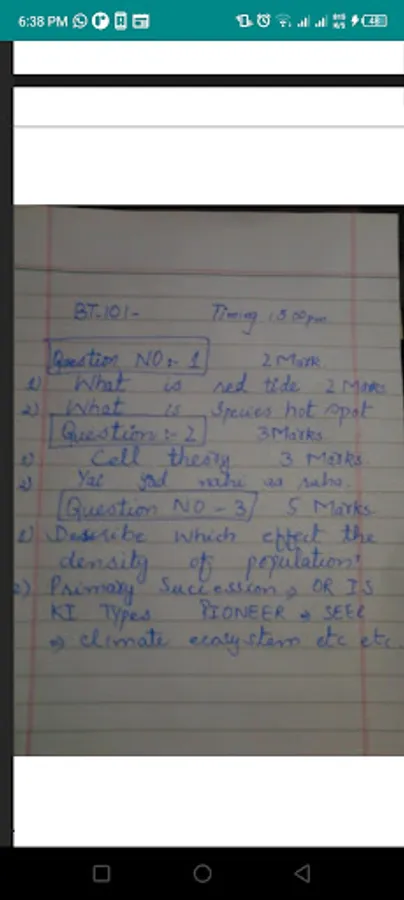 6:38 PM
48
BT-101- Timing :5:00pm
Question NO:- 1 2 Mark
1) What is red tide 2 Marks
2) What is Species hot spot
Question:- 2 3 Marks
1) Cell theory 3 Marks.
2) Yae yad nahi aa raha.
Question NO - 3 5 Marks
1) Describe which effect the
density of population?
2) Primary Succession, OR IS
KI Types PIONEER → SEER
→ climate ecosystem etc etc.